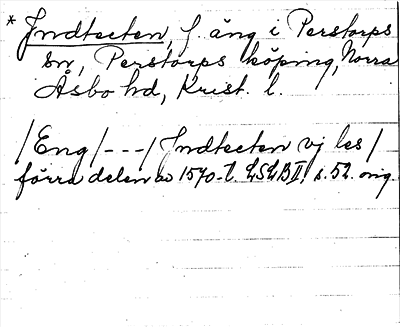 * Jndtecten, f. äng i Perstorps
sn, Perstorps köping, Norra
Åsbo hd, Krist. l.
/Eng/---/Jndtecten vj les/
förra delen av 1570-t. LSLB II: s. 52. orig.